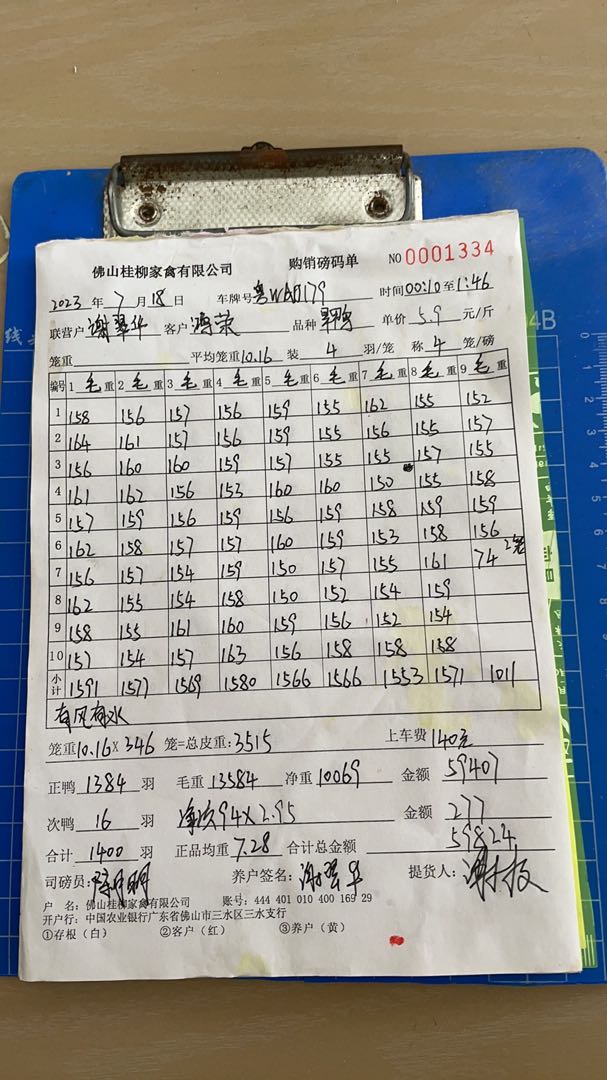 佛山桂柳家禽有限公司 购销磅码单 NO 0001334
2023 年 7 月 18 日 车牌号 粤 时间 00:10 至 1:46
联营户 谢翠华 客户 鸿荣 品种 单价 5.9 元/斤
笼重 平均笼重 10.16 装 4 羽/笼 称 4 笼/磅
编号 1 毛重 2 毛重 3 毛重 4 毛重 5 毛重 6 毛重 7 毛重 8 毛重 9 毛重
1 158 156 157 156 159 155 162 155 152
2 164 161 157 156 159 155 156 155 157
3 156 160 160 159 157 155 155 157 155
4 161 162 156 153 160 160 150 155 158
5 157 159 156 159 156 159 158 159 159
6 162 158 157 157 160 159 153 158 156
7 156 157 154 159 150 157 155 161 74 2笼
8 162 155 154 158 150 152 154 159
9 158 155 161 160 159 156 152 154
10 157 154 157 163 156 158 158 158
小计 1591 1577 1569 1580 1566 1566 1553 1571 1011
有风有水
笼重 10.16 X 346 笼=总皮重: 3515 上车费 140元
正鸭 1384 羽 毛重 13584 净重 10069 金额 59407
次鸭 16 羽 净次94X2.95 金额 277
合计 1400 羽 正品均重 7.28 合计总金额 59824
司磅员: 养户签名: 谢翠华 提货人:
户 名: 佛山桂柳家禽有限公司 账号: 444 401 010 400 169 29
开户行: 中国农业银行广东省佛山市三水区三水支行
①存根（白） ②客户（红） ③养户（黄）